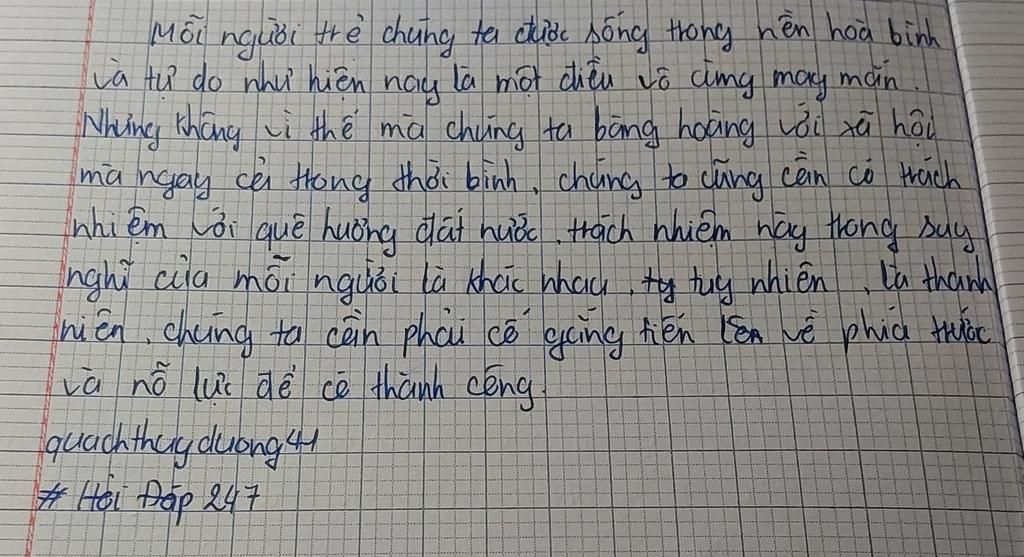 Mỗi người trẻ chúng ta được sống trong nền hoà bình
và tự do như hiện nay là một điều vô cùng may mắn.
Nhưng không vì thế mà chúng ta bàng hoàng với xã hội
mà ngay cả trong thời bình, chúng ta cũng cần có trách
nhiệm với quê hương đất nước, trách nhiệm này trong suy
nghĩ của mỗi người là khác nhau, tuy nhiên, là thanh
niên, chúng ta cần phải cố gắng tiến lên về phía trước
và nỗ lực để có thành công.
quachthuyduong41
# Hỏi Đáp 247